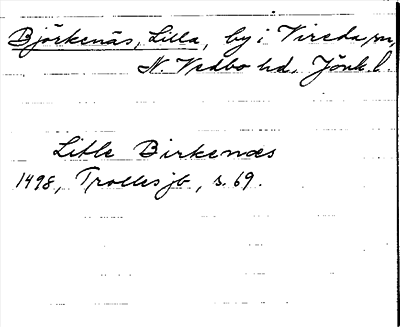 Björkenäs, Lilla, by i Vireda sn,
N. Vedbo hd, Jönk. l.
Litle Birkenæs
1498, Trolles jb, s. 69.